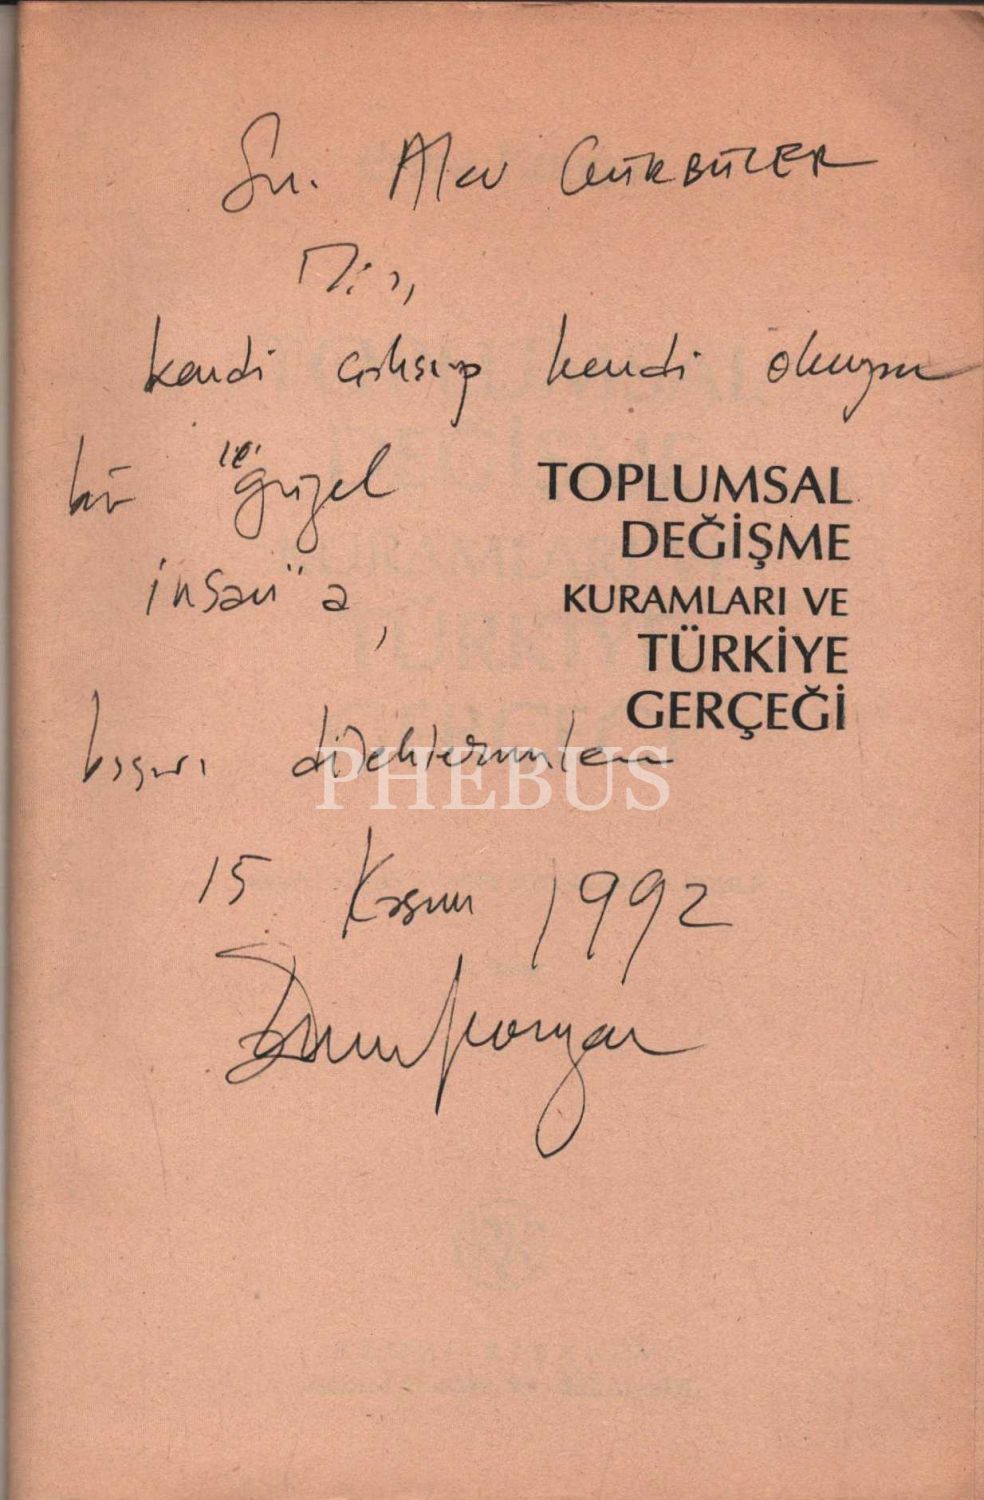 Sn. Alev GÜRBÜZER
kendi çalışıp kendi okuyan
bir "güzel
insan" a,
TOPLUMSAL
DEĞİŞME
KURAMLARI VE
TÜRKİYE
GERÇEĞİ
başarı dileklerimle
PHEBUS
15 Kasım 1992